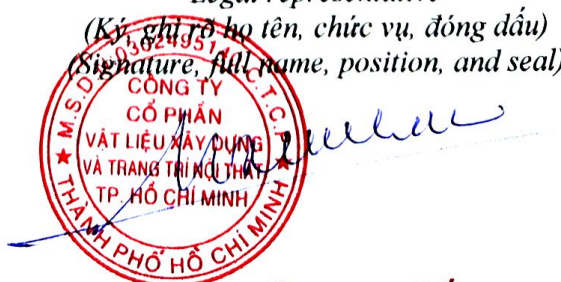 Legal representative
(Ký, ghi rõ họ tên, chức vụ, đóng dấu)
(Signature, full name, position, and seal)
M.S.D.N:0302495140 C.T.C.P
CÔNG TY
CỔ PHẦN
VẬT LIỆU XÂY DỰNG
VÀ TRANG TRÍ NỘI THẤT
TP. HỒ CHÍ MINH
THÀNH PHỐ HỒ CHÍ MINH